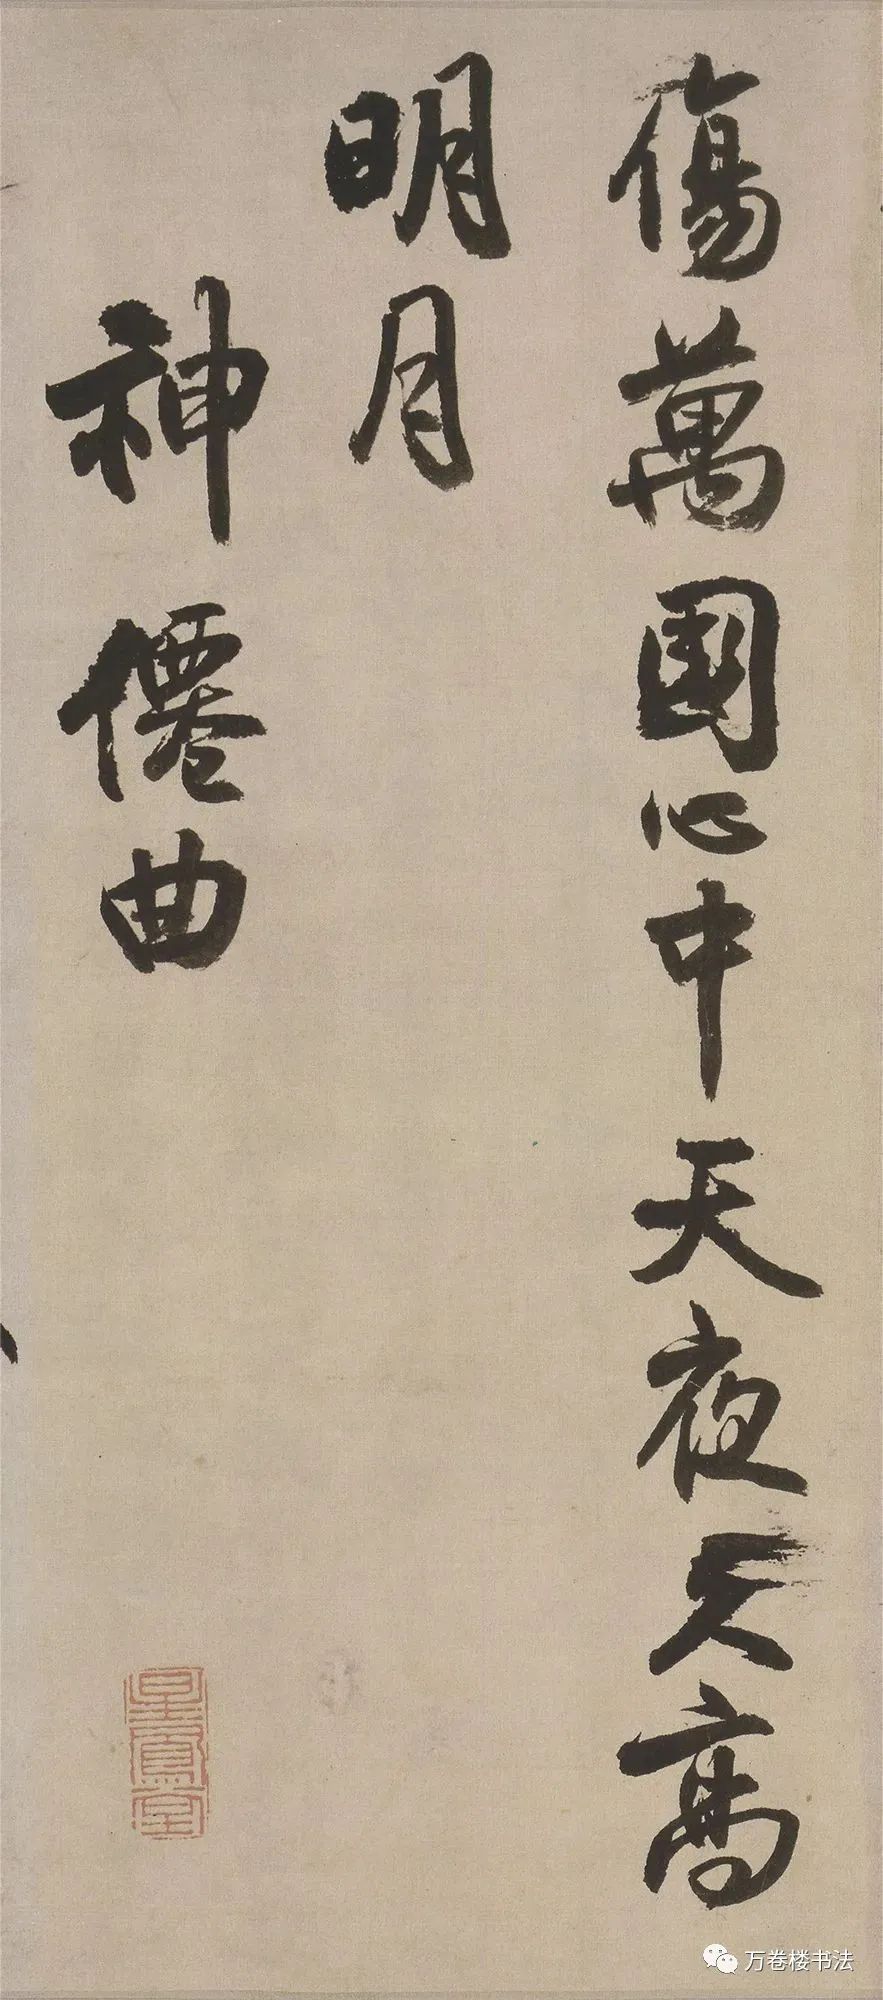 傷萬國心中天夜久高
明月
神僊曲
星鳳堂
万卷楼书法